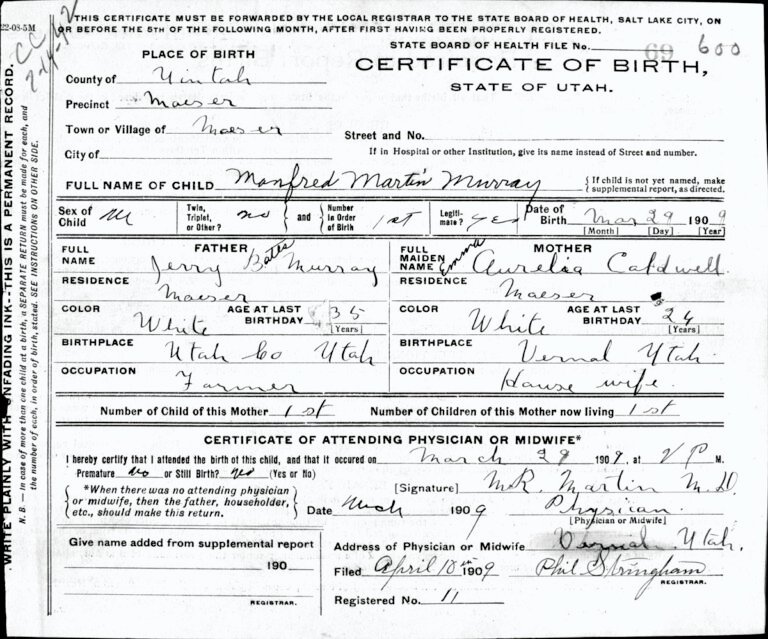 THIS CERTIFICATE MUST BE FORWARDED BY THE LOCAL REGISTRAR TO THE STATE BOARD OF HEALTH, SALT LAKE CITY, ON
OR BEFORE THE 5TH OF THE FOLLOWING MONTH, AFTER FIRST HAVING BEEN PROPERLY REGISTERED.
22-08-5M
STATE BOARD OF HEALTH FILE No. 69 600
PLACE OF BIRTH
CERTIFICATE OF BIRTH,
STATE OF UTAH.
County of Uintah
Precinct Maeser
Town or Village of Maeser
Street and No.
City of
If in Hospital or other Institution, give its name instead of Street and number.
FULL NAME OF CHILD Manfred Martin Murray { If child is not yet named, make supplemental report, as directed.
Sex of Child M Twin, Triplet, or Other? no { and } Number in Order of Birth 1st Legitimate? yes Date of Birth Mar 29 1909
[Month] [Day] [Year]
FATHER
FULL NAME Jerry Bates Murray
RESIDENCE
Maeser
COLOR White AGE AT LAST BIRTHDAY 35 [Years]
BIRTHPLACE
Utah Co Utah
OCCUPATION
Farmer
MOTHER
FULL MAIDEN NAME Emma Aurelia Caldwell
RESIDENCE
Maeser
COLOR White AGE AT LAST BIRTHDAY 24 [Years]
BIRTHPLACE
Vernal Utah.
OCCUPATION
House wife.
Number of Child of this Mother 1st Number of Children of this Mother now living 1st
CERTIFICATE OF ATTENDING PHYSICIAN OR MIDWIFE*
I hereby certify that I attended the birth of this child, and that it occured on March 29 1909, at P M.
Premature No or Still Birth? (Yes or No)
{ *When there was no attending physician or midwife, then the father, householder, etc., should make this return. }
[Signature] M.D.
Date 1909 Physician.
[Physician or Midwife]
Give name added from supplemental report
190
REGISTRAR.
Address of Physician or Midwife Vernal Utah.
Filed April 10th 1909 Phil Stringham
REGISTRAR.
Registered No. 11
WRITE PLAINLY WITH UNFADING INK--THIS IS A PERMANENT RECORD.
N. B. — In case of more than one child at a birth, a SEPARATE RETURN must be made for each, and
the number of each, in order of birth, stated. SEE INSTRUCTIONS ON OTHER SIDE.